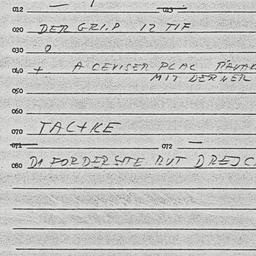 012
013
020 DER GRIP 12 TIF
030 O
040 + A CEVISER PLAC
MIT DERNER
050
060
070 TACHKE
071 072
080 DA FORDERSTE RUT DREJC